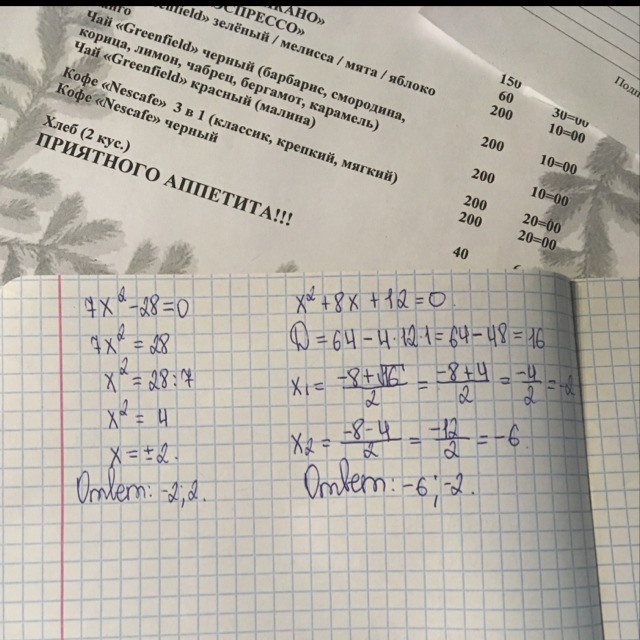 КАНО»
ЭСПРЕССО»
зелёный / мелисса / мята / яблоко
Чай «Greenfield» черный (барбарис, смородина,
корица, лимон, чабрец, бергамот, карамель)
Чай «Greenfield» красный (малина)
Кофе «Nescafe» 3 в 1 (классик, крепкий, мягкий)
Кофе «Nescafe» черный
Хлеб (2 кус.)
ПРИЯТНОГО АППЕТИТА!!!
150
60 30=00
200 10=00
200 10=00
200 10=00
200 20=00
200 20=00
40
7x² - 28 = 0
7x² = 28
x² = 28:7
x² = 4
x = ±2.
Ответ: -2; 2.
x² + 8x + 12 = 0.
D = 64 - 4·12·1 = 64 - 48 = 16
x₁ = (-8+√16)/2 = (-8+4)/2 = -4/2 = -2
x₂ = (-8-4)/2 = -12/2 = -6.
Ответ: -6; -2.